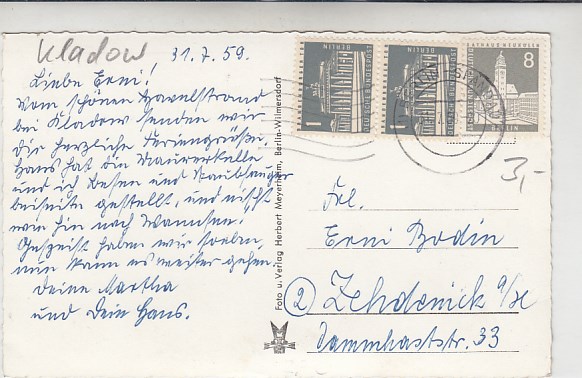 Kladow
31.7.59.
Liebe Erni!
Vom schönen Havelstrand
bei Kladow senden wir
Dir herzliche Feriengrüße.
Hans hat die Maurerkelle
und ich Besen und Staubfänger
beiseite gestellt, und nischt
wie hin nach Wannsee.
Gespeist haben wir soeben,
nun kann es weiter gehen.
Deine Martha
und Dein Hans.
Foto u. Verlag Herbert Meyerheim, Berlin-Wilmersdorf
1
BERLIN
DEUTSCHE BUNDESPOST
1
BERLIN
DEUTSCHE BUNDESPOST
8
RATHAUS NEUKÖLLN
BERLIN
3,-
Frl.
Erni Bodin
2 Zehdenick a/H
Dammhaststr. 33